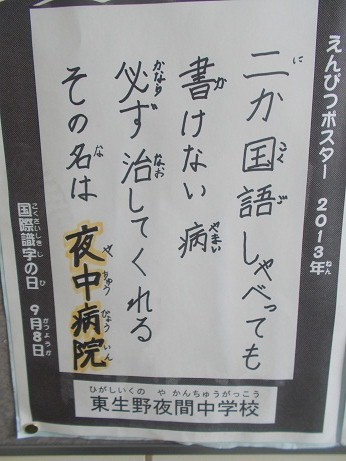 えんぴつポスター　2013年
二か国語しゃべっても
書けない病
必ず治してくれる
その名は　夜中病院
国際識字の日　9月8日
東生野夜間中学校